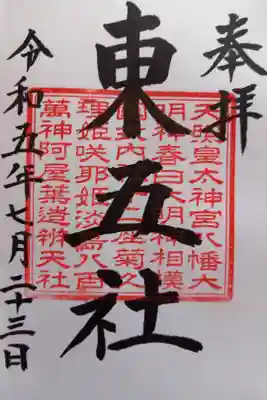 奉拝
東五社
令和五年七月二十三日
天照皇太神宮八幡大
明神春日大明神相模
國内座菊久
理姫咲耶姫淡島八百
萬神阿屋葉造辨天社